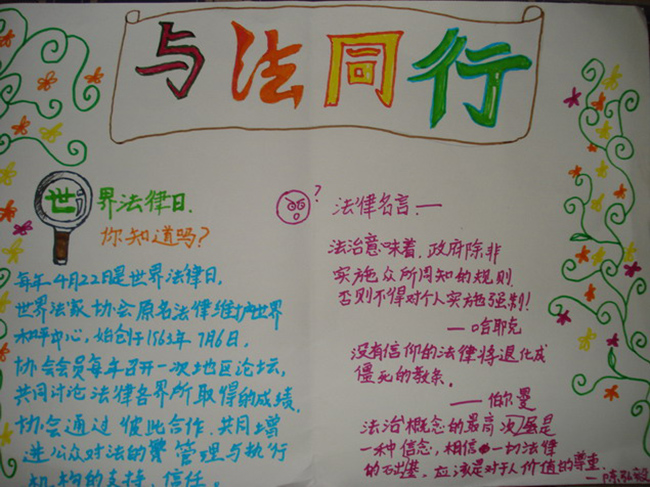 与法同行
世界法律日.
你知道吗?
每年4月22日是世界法律日,
世界法家协会原名法律维护世界
和平中心,始创于1563年7月6日,
协会会员每年召开一次地区论坛,
共同讨论法律各界所取得的成绩.
协会通过彼此合作.共同增
进公众对法的 管理与执行
机构的支持、信任。
?
法律名言:—
法治意味着,政府除非
实施众所周知的规则,
否则不得对个人实施强制!
—哈耶克
没有信仰的法律将退化成
僵死的教条。
——伯尔曼
法治概念的最高 是
一种信念,相信 一切法律
的 础 应该是对于人价值的尊重
—陈弘毅